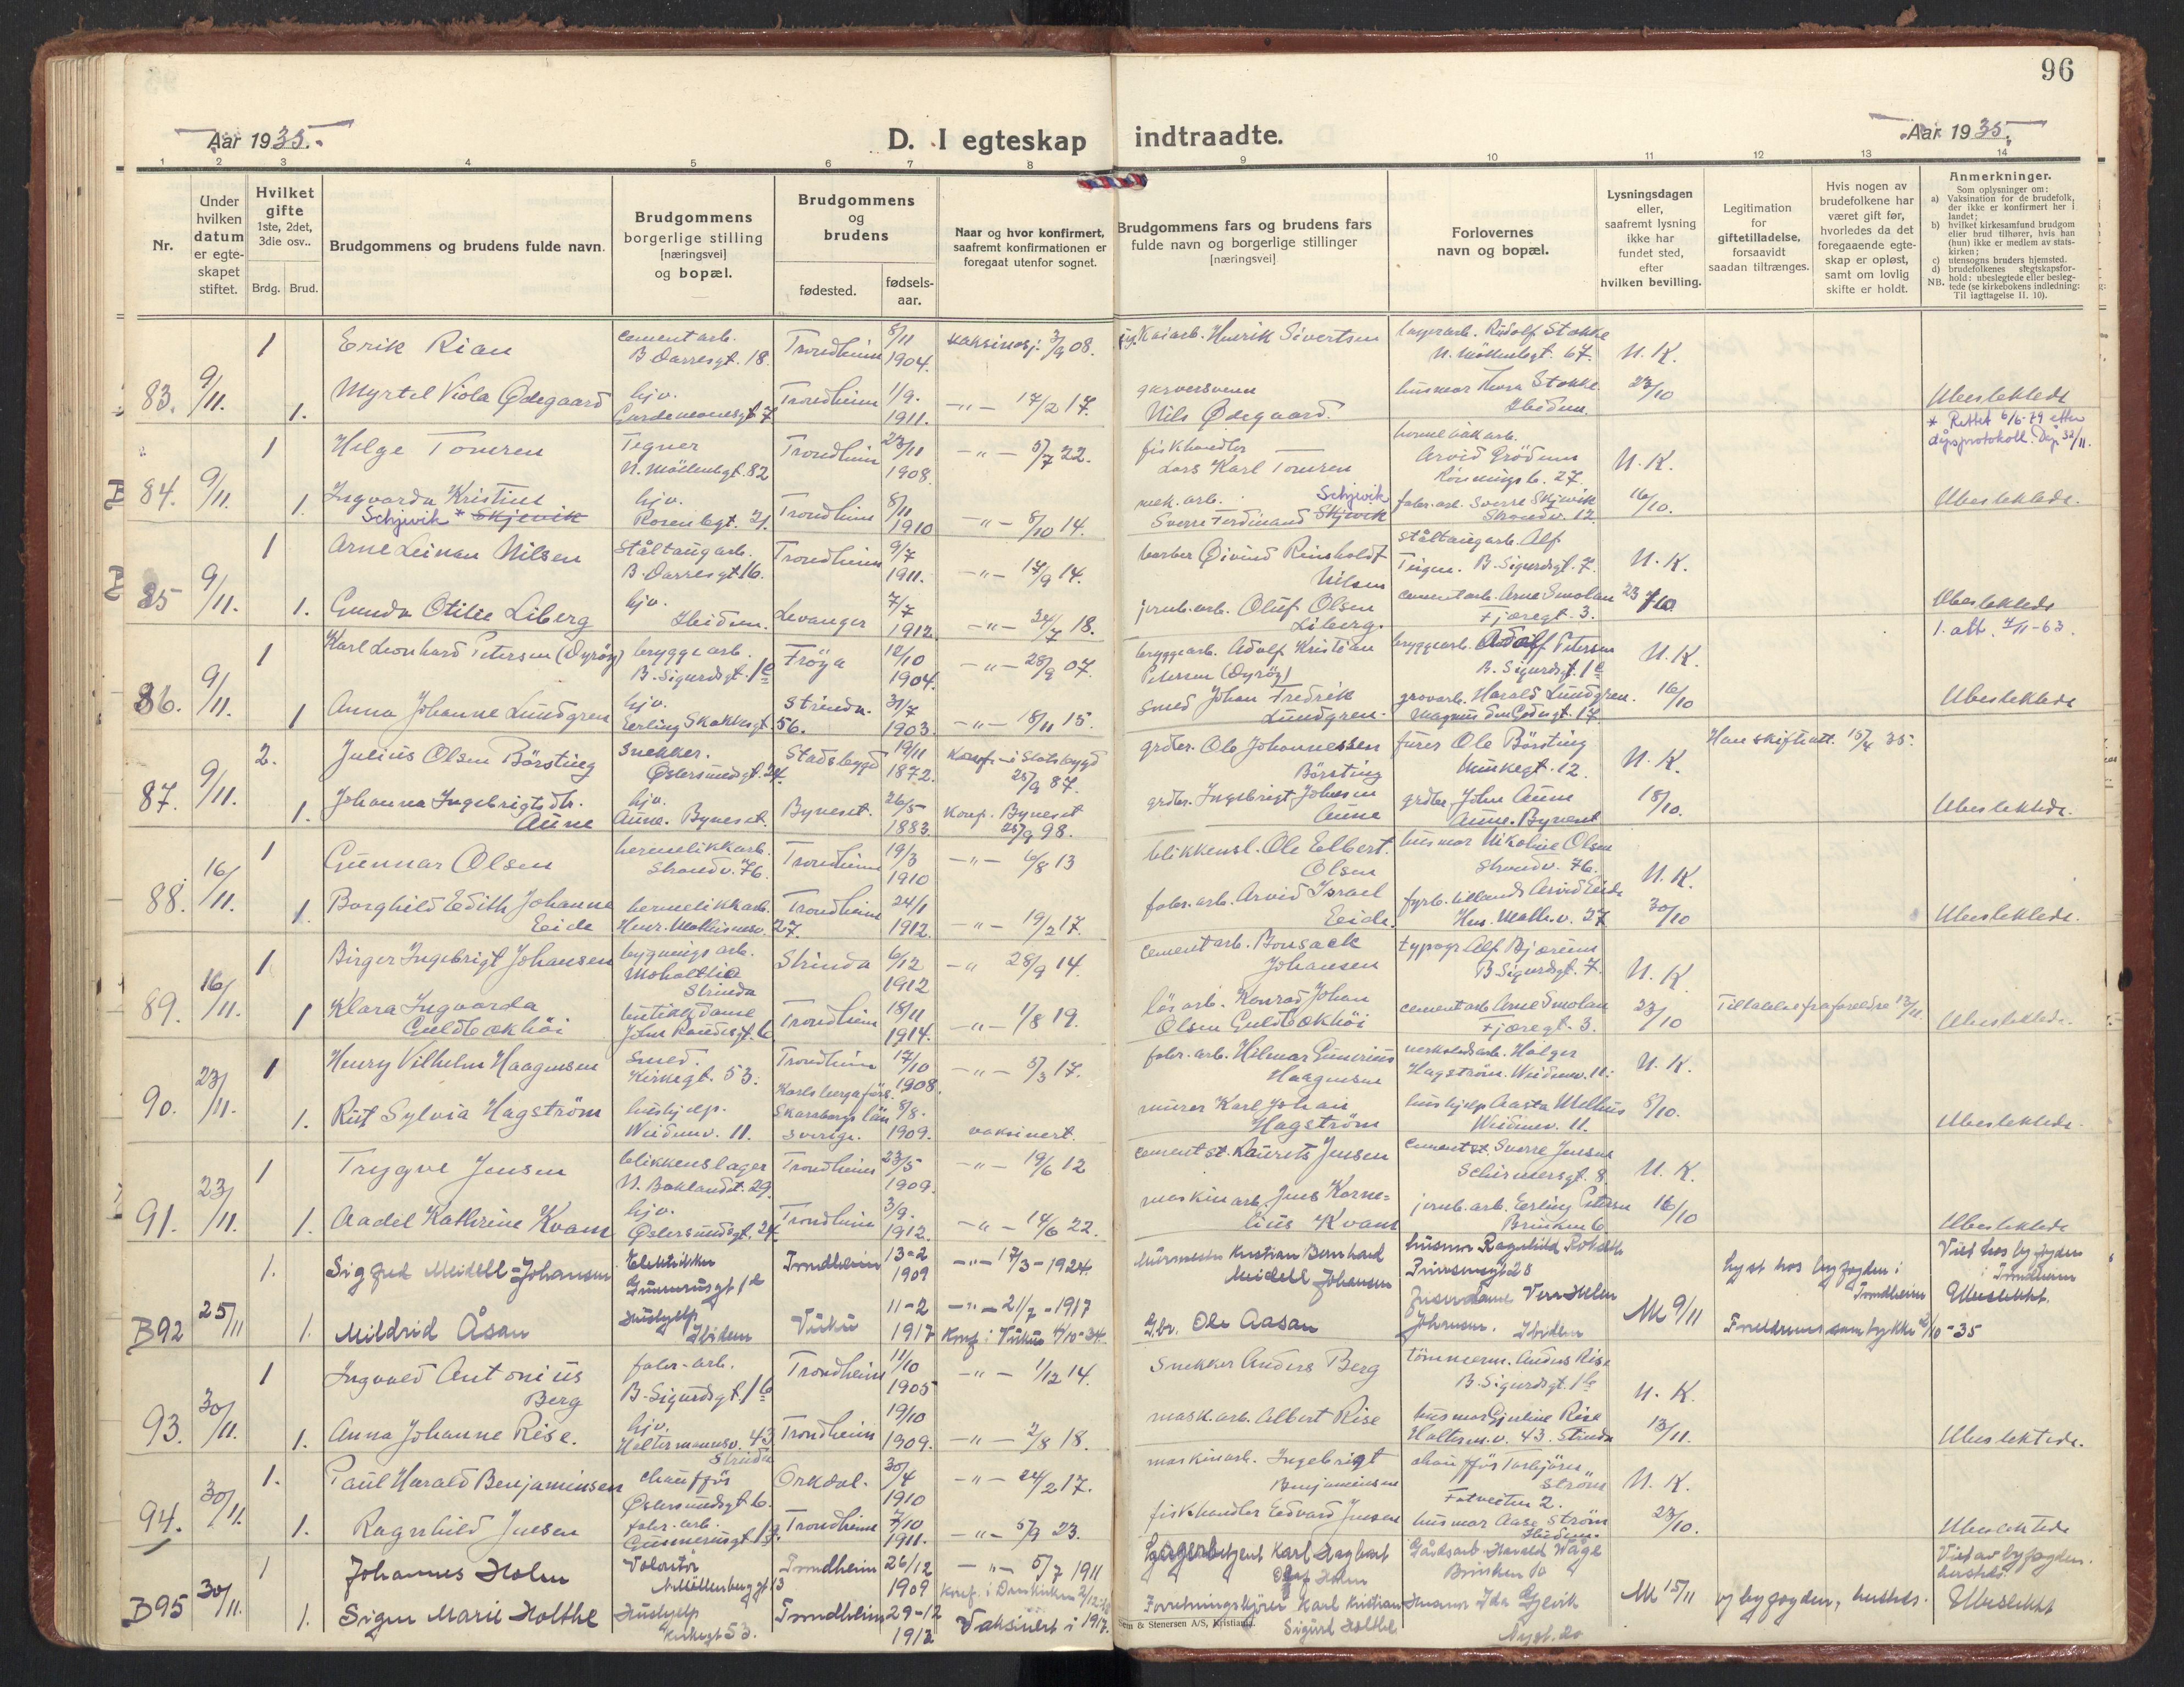 96
Aar 1935.
D. I egteskap indtraadte.
Aar 1935.
1 2 3 4 5 6 7 8 9 10 11 12 13 14
Nr.
Under hvilken datum er egteskapet stiftet.
Hvilket gifte 1ste, 2det, 3die osv..
Brdg. Brud.
Brudgommens og brudens fulde navn.
Brudgommens borgerlige stilling [næringsvei] og bopæl.
Brudgommens og brudens
fødested.
fødselsaar.
Naar og hvor konfirmert, saafremt konfirmationen er foregaat utenfor sognet.
Brudgommens fars og brudens fars fulde navn og borgerlige stillinger [næringsvei]
Forlovernes navn og bopæl.
Lysningsdagen eller, saafremt lysning ikke har fundet sted, efter hvilken bevilling.
Legitimation for giftetilladelse, forsaavidt saadan tiltrænges.
Hvis nogen av brudefolkene har været gift før, hvorledes da det foregaaende egteskap er opløst, samt om lovlig skifte er holdt.
Anmerkninger.
Som oplysninger om:
a) Vaksination for de brudefolk, der ikke er konfirmert her i landet;
b) hvilket kirkesamfund brudgom eller brud tilhører, hvis han (hun) ikke er medlem av statskirken;
c) utensogns bruders hjemsted.
d) brudefolkenes slegtskapsforhold: ubeslegtede eller beslegtede (se kirkebokens indledning: Til iagttagelse II. 10).
NB.
1 Erik Rian cementarb. B Darresgt. 18. Trondheim 8/11 1904. vaksinasj. 3/9 08. Kaiarb. Henrik Sivertsen lagerarb. Rudolf Stokke N. Möllenbgt. 67. U. K.
83. 9/11. 1. Myrtel Viola Ødegaard hjv. Trondheim 1/9. 1911. -"- 17/2 17. garversvenn Nils Ødegaard. husmor Thora Stokke Ibidem 23/10 Ubeslektede
* Rettet 6/6-79 etter dåpsprotokoll.
1 Helge Tomren Tegner N. Möllenbgt. 82 Trondheim 23/11 1908. -"- 5/7 22. fiskhandler Lars Karl Tomren Arvid Grödum Rönningsb. 27. U. K.
84. 9/11. 1. Ingvarda Kristine Schjevik * Skjevik hjv. Rosenbgt. 21. Trondheim 8/11 1910 -"- 8/10 14. mek. arb. Sverre Ferdinand Skjevik Schjevik fabr. arb. Sverre Skjevik Strandv. 12. 16/10. Ubeslektede.
1 Arne Leinan Nilsen Ståltaugarb. B. Darresgt 16. Trondheim 9/7 1911. -"- 17/9 14. barber Øivind Reinholdt Nilsen ståltaugarb. Alf Teigen. B. Sigurdsgt. 7. U. K.
85 9/11. 1. Gunda Otilie Liberg hjv. Ibidem. Levanger 7/7 1912. -"- 24/7 18. jernb. arb. Oluf Olsen Liberg. cementarb. Arne Smolan Fjæregt. 3. 23/10 Ubeslektede
1. att. 4/11-63.
1 Karl Leonhard Petersen (Dyröy) bryggearb. B. Sigurdsgt. 1c Fröya 12/10 1904. -"- 28/9 07. bryggearb. Adolf Kristian Petersen (Dyröy) bryggearb. Adolf Petersen B. Sigurdsgt. 1c U. K.
86. 9/11. 1 Anna Johanne Lundgren hjv. Erling Skakkesgt 56. Strinda. 31/7 1903. -"- 18/11 15. Smed Johan Fredrik Lundgren. grovarb. Harald Lundgren. Magnus den Godesgt. 17. 16/10 Ubeslektede
2. Julius Olsen Börsting Snekker. Östersundsgt. 24. Stadsbygd 19/11 1872. Konf. i Stadsbygd 25/9 87. grdbr. Ole Johannessen Börsting furer Ole Börsting Munkegt. 12. U. K. Han skifteatt. 15/4 35.
87. 9/11. 1. Johanna Ingebrigtsdtr. Aune hjv. Aune. Byneset. Byneset. 26/5 1883. Konf. Byneset 25/9 98. grdbr. Ingebrigt Johnsen Aune grdbr. John Aune Aune. Byneset 18/10. Ubeslektede.
1 Gunnar Olsen hermetikkarb. Strandv. 76. Trondheim 19/3 1910 -"- 6/8 13 blikkensl. Ole Edbert. Olsen husmor Nikoline Olsen Strandv. 76. U. K.
88. 16/11. 1. Borghild Edith Johanne Eide hermetikkarb. Henr. Mathisensv. 27. Trondheim 24/1 1912. -"- 19/2 17. fabr. arb. Arvid Israel Eide. Arvid Eide Hen. Math. v. 27 30/10 Ubeslektede.
1 Birger Ingebrigt Johansen bygningsarb. Moholtlia Strinda Strinda 6/12 1912 -"- 28/9 14. cementarb. Bonsack Johansen typogr. Alf Bjærum B Sigurdsgt. 7. U. K.
89. 16/11. 1 Klara Ingvarda Guldbækhöi butikkdame Trondheim 18/11 1914. -"- 1/8 19. lösarb. Konrad Johan Olsen Guldbækhöi cementarb. Arne Smolan Fjæregt. 3. 23/10 Tillatelse fra foreldre 12/11. Ubeslektede.
1 Henry Vilhelm Haagensen Smed. Kirkegt. 53. Trondheim 17/10 1908. -"- 5/3 17. fabr. arb. Hilmar Gunerius Haagensen verkstedarb. Holger Hagström. Weidemv. 11. U. K.
90. 23/11. 1. Rut Sylvia Hagström hushjelp. Weidemv. 11. Karlsborgs förs. Skaraborgs län Sverige. 8/8. 1909. vaksinert. murer Karl Johan Hagström hushjelp Aasta Melhus Weidemv. 11. 8/10. Ubeslektede.
1 Trygve Jensen blikkenslager N. Baklandet. 29. Trondheim 23/5 1909. -"- 19/6 12 cementst. Laurits Jensen cementst. Sverre Jensen Schirmersgt. 8. U. K.
91. 23/11. 1. Aadel Kathrine Kvam hjv. Östersundsgt. 24. Trondheim 3/9. 1912. -"- 14/6 22. maskinarb. Jens Kornelius Kvam jernb. arb. Erling Petersen Brinken 6 16/10 Ubeslektede
1. Sigfred Meidell-Johansen Elektriker Gunnerusgt 1d Trondheim 13-2 1909 -"- 17/3-1924. murmester Kristian Bernhard Meidell Johansen husmor Ragnhild Prinsensgt 28 Lyst hos byfogden i Trondheim Viet hos byfogden i Trondheim
B92 25/11 1. Mildrid Åsan Hushjelp Ibidem Vuku 11-2 1917 -"- 21/7-1917 Konf. i Vuku 4/10-34. Gbr. Ole Aasan Frisördame Vera Helen Johansen. Ibidem M 9/11 Foreldrenes samtykke /10-35 Ubeslekt.
1 Ingvald Antonius Berg fabr. arb. B. Sigurdsgt. 1b Trondheim 11/10 1905 -"- 1/12 14. Snekker Anders Berg tömmerm. Anders Rise B. Sigurdsgt. 1b U. K.
93. 30/11. 1. Anna Johanne Rise. hjv. Haltermannsv. 43 Strinda Trondheim 19/10 1909. -"- 2/8 18. mask. arb. Albert Rise husmor Gjertine Rise Halterm.v. 43. Strinda 13/11. Ubeslektede.
1. Paul Harald Benjaminsen chaufför Östersundsgt 6. Orkdal. 30/4 1910 -"- 24/2 17. maskinarb. Ingebrigt Benjaminsen chaufför Torbjörn Ström Tofveiten 2. U. K.
94. 30/11. 1. Ragnhild Juesen fabr. arb. Gunnerusgt. Trondheim 7/10 1911. -"- 5/9 23. fiskhandler Edvard Juesen husmor Aase Ström Ibidem. 23/10. Ubeslektede
1 Johannes Holm Volontör N. Möllenberggt 13 Trondheim 26/12 1909 -"- 5/7 1911 Konf. i Domkirken Lagerbetjent Karl Dagbart Olaf Holm Gårdsarb. Harald Wåge Brinken Viet av byfogden.
B95 30/11. 1. Signe Marie Holthe Hushjelp Kirkegt 53. Trondheim 29-12 1912 Vaksinert i 1917. Forretningskjörer Karl Kristian Sigurd Holthe Husmor Ida Gjevik Nygt. 20 M 15/11 Ubeslekt
& Stenersen A/S, Kristiania.